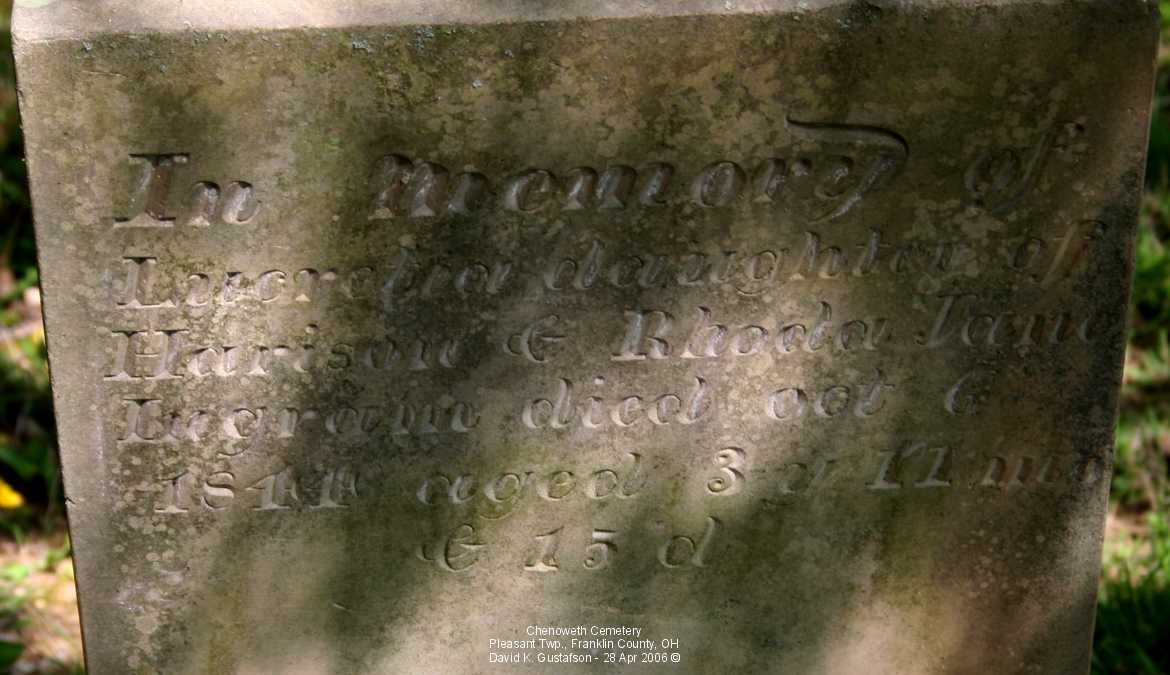 In Memory of
Lucretia daughter of
Harison & Rhoda Jane
Ingram died oct 6
1844 aged 3 y 11 mo
& 15 d
Chenoweth Cemetery
Pleasant Twp., Franklin County, OH
David K. Gustafson - 28 Apr 2006 ©